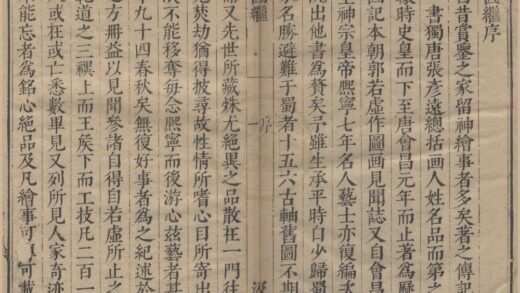 繼序
昔賞鑒之家留神繪事者多矣著之傳記
書獨唐張彥遠總括画人姓名品而第之
轅時史皇而下至唐會昌元年而止著爲歷
画記本朝郭若虛作圖画見聞誌又自會昌
至神宗皇帝熙寧七年名人藝士亦復編次
出他書爲贅矣予雖生承平時自少歸蜀
家名勝避難于蜀者十五六古軸舊圖不期
序
一
又先世所藏殊尤絕異之品散在一門往
焚劫猶得披尋故性情所嗜心目所寄出
不能移奪每念熙寧而後游心茲藝者甚
九十四春秋矣無復好事者爲之紀述於
之方冊益以見聞參諸自得自若虛所止之
乾道之三禩上而王矦下而工技凡二百一
人或在或亡悉數畢見又列所見人家奇迹
能忘者爲銘心絕品及凡繪事可可載